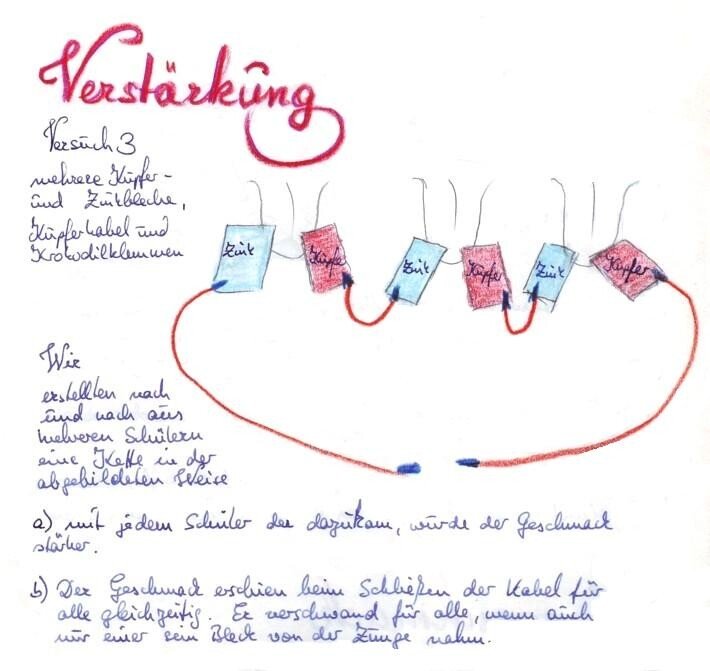 Verstärkung
Versuch 3
mehrere Kupfer-
und Zinkbleche,
Kupferkabel und
Krokodilklemmen
Zink Kupfer Zink Kupfer Zink Kupfer
Wir
erstellten nach
und nach aus
mehreren Schülern
eine Kette in der
abgebildeten Weise
a) mit jedem Schüler der dazukam, wurde der Geschmack
stärker.
b) Der Geschmack erschien beim Schließen der Kabel für
alle gleichzeitig. Er verschwand für alle, wenn auch
nur einer sein Blech von der Zunge nahm.